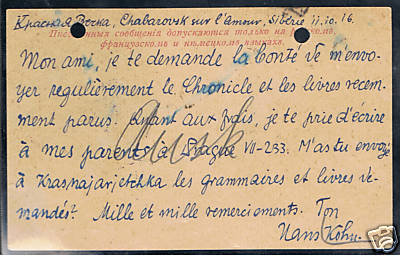 Красная Рѣчка, Chabarovsk sur l'amour, Sibérie 11.10.16.
Письменныя сообщенiя допускаются только на русскомъ,
французскомъ и нѣмецкомъ языкахъ.
Mon ami, je te demande la bonté de m'envo-
yer regulièrement le Chronicle et les livres recem-
ment parus. Quant aux frais, je te prie d'écrire
à mes parents à Prague VII-233. M'as tu envoyé
à Krasnajarjetschka les grammaires et livres de-
mandés? Mille et mille remerciements. Ton
Hans Kohn.